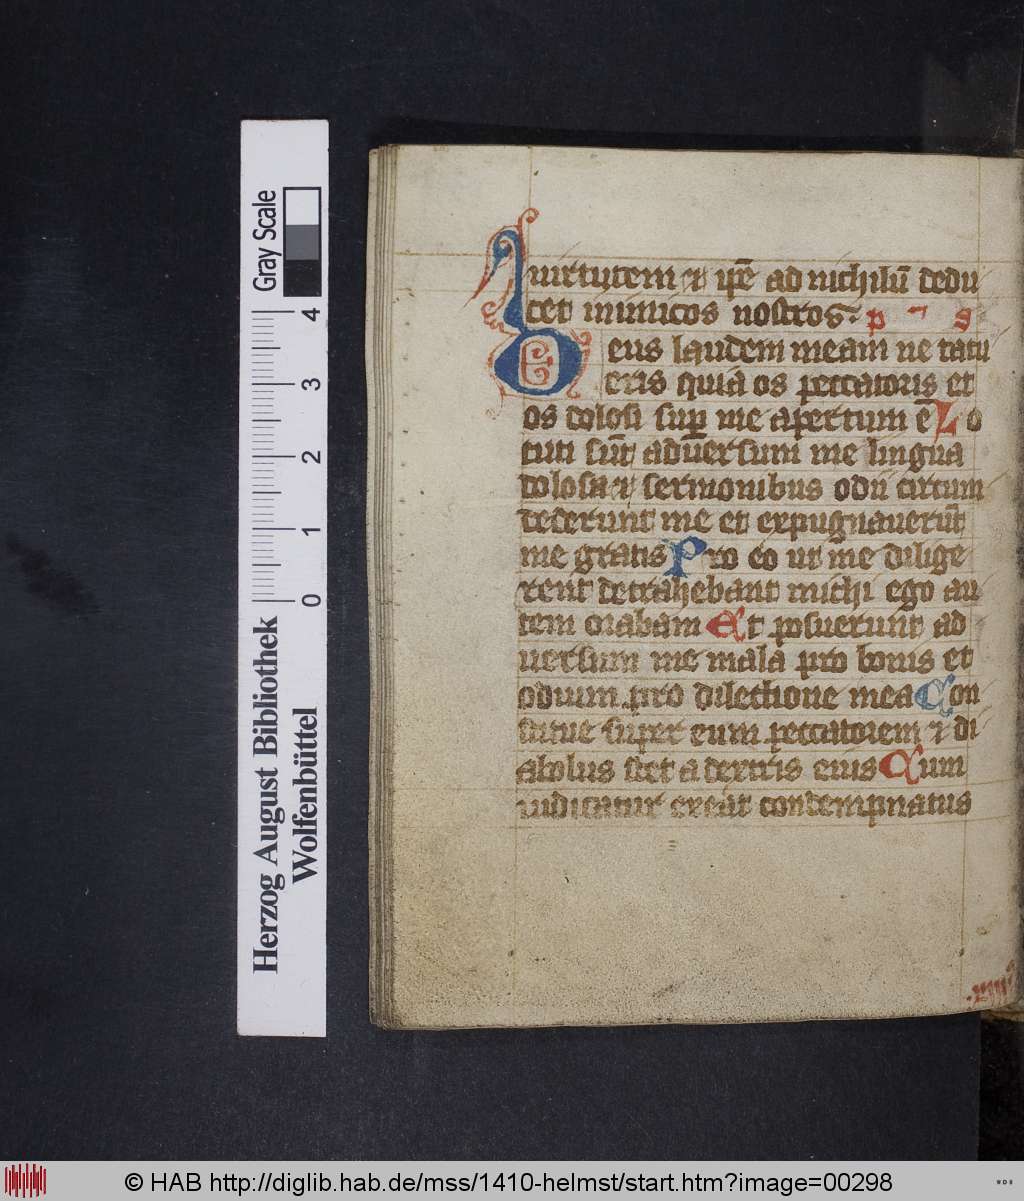 Gray Scale
4
3
2
1
0
Herzog August Bibliothek
Wolfenbüttel
uirtutem ⁊ ip̄e ad nichilū dedu
cet inimicos nostros. p s
Deus laudem meam ne tacu
eris quia os peccatoris et
os dolosi sup̄ me apertum ē Lo
cuti sūt adūersum me lingua
dolosa ⁊ sermonibus odii circum
dederunt me et expugnauerūt
me gratis Pro eo ut me dilige
rent detrahebant michi ego au
tem orabam Et posuerunt ad
uersum me mala pro bonis et
odium pro dilectione mea Con
stitue super eum peccatorem ⁊ di
abolus stet a dextris eius Cum
iudicatur exeat condempnatus
© HAB http://diglib.hab.de/mss/1410-helmst/start.htm?image=00298